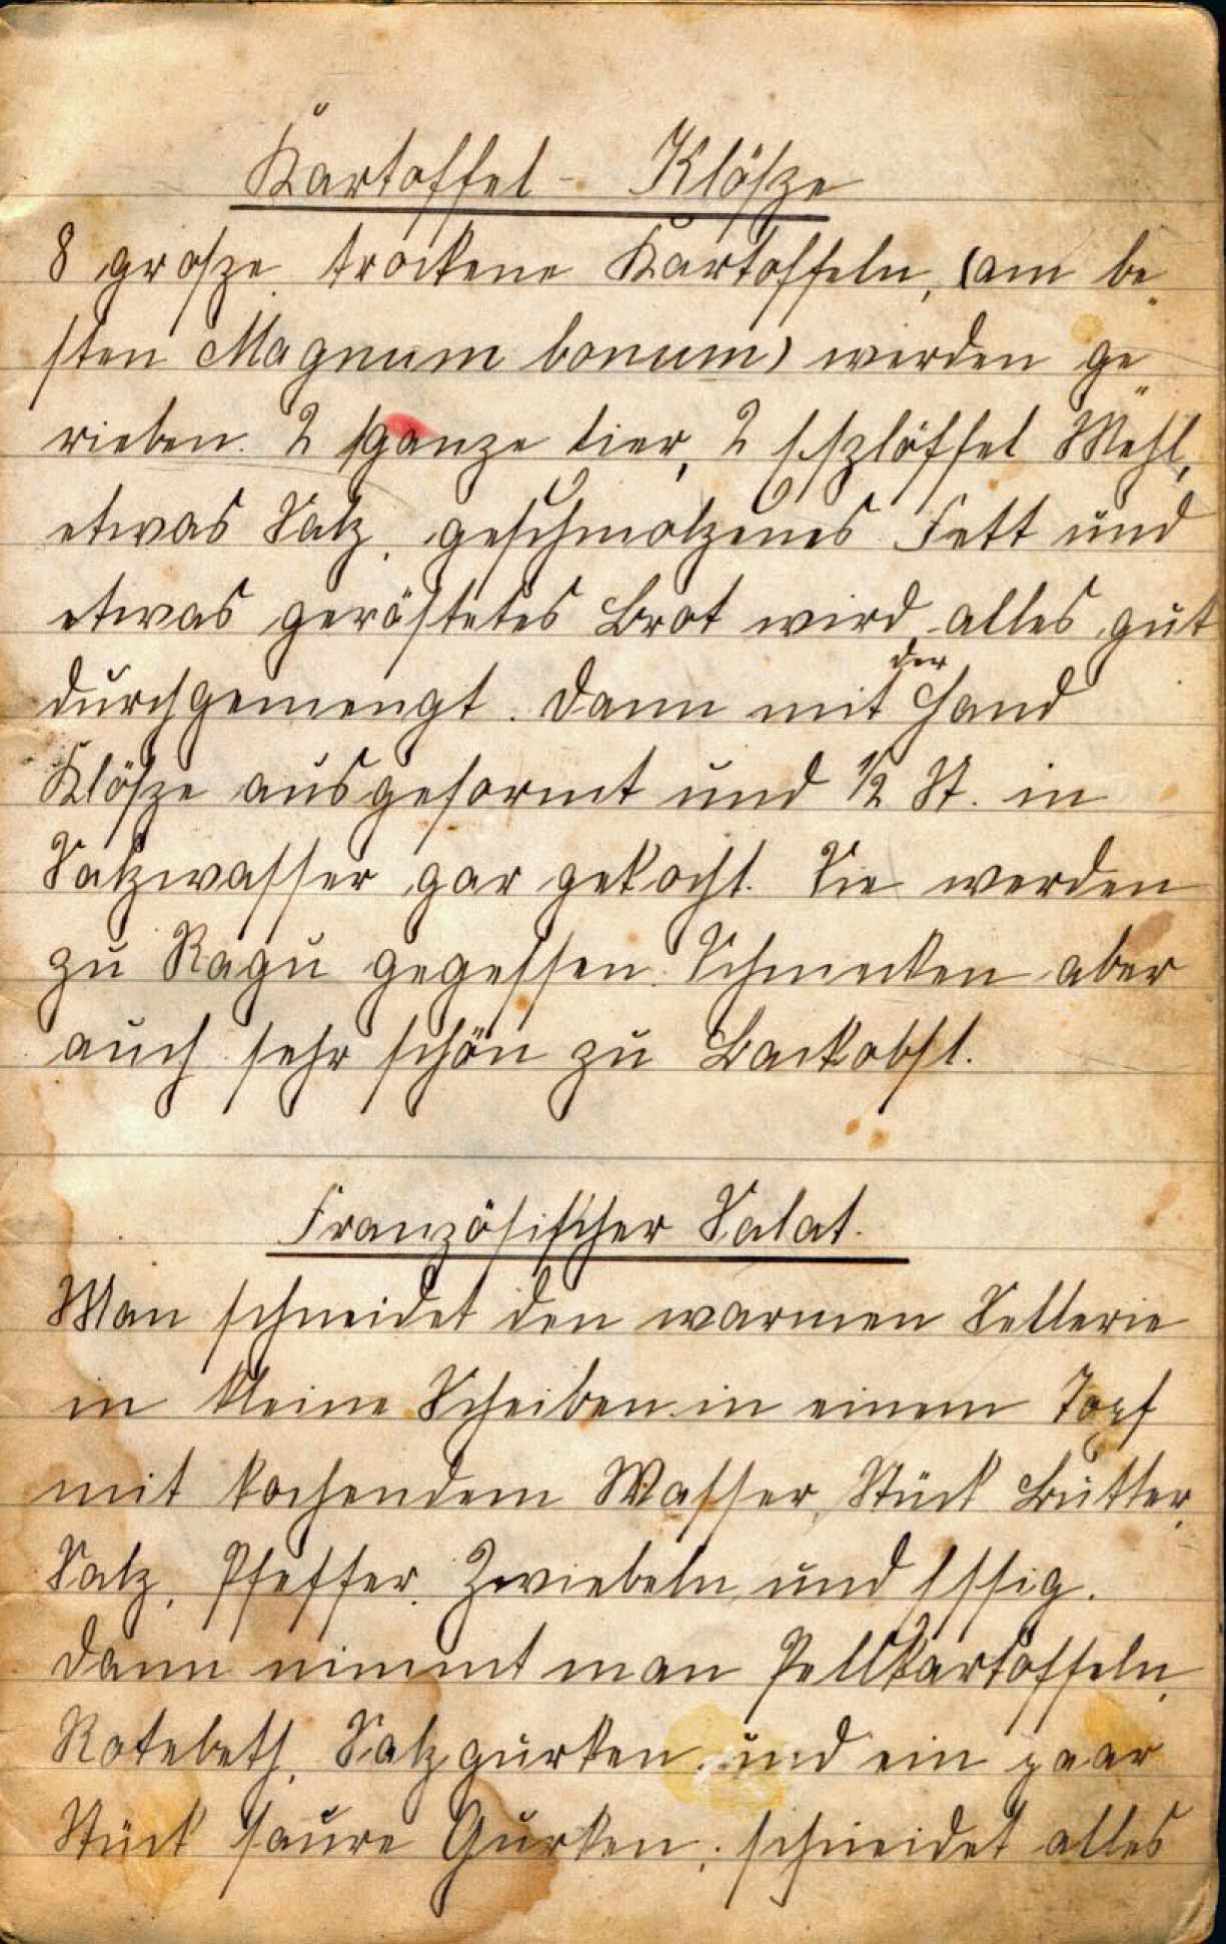 Kartoffel - Klösze
8 grosze trockene Kartoffeln, (am be„
sten Magnum bonum) werden ge„
rieben. 2 ganze Eier, 2 Eszlöffel Mehl,
etwas Salz, geschmolzenes Fett und
etwas geröstetes Brot wird alles gut
durchgemengt. Dann mit der Hand
Klösze ausgeformt und 1/2 St. in
Salzwasser gar gekocht. Sie werden
zu Ragu gegessen. Schmecken aber
auch sehr schön zu Backobst.
Französischer Salat.
Man schneidet den warmen Sellerie
in kleine Scheiben in einem Topf
mit kochendem Wasser, Stück Butter,
Salz, Pfeffer, Zwiebeln und Essig.
Dann nimmt man Pellkartoffeln,
Rotebeth, Salzgurken und ein paar
Stück saure Gurken, schneidet alles